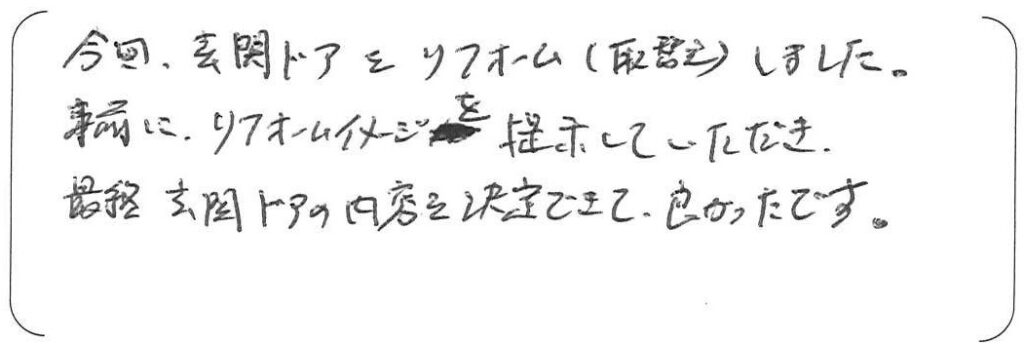 今回、玄関ドアをリフォーム(取替え)しました。
事前に、リフォームイメージを提示していただき、
最終玄関ドアの内容を決定できて、良かったです。